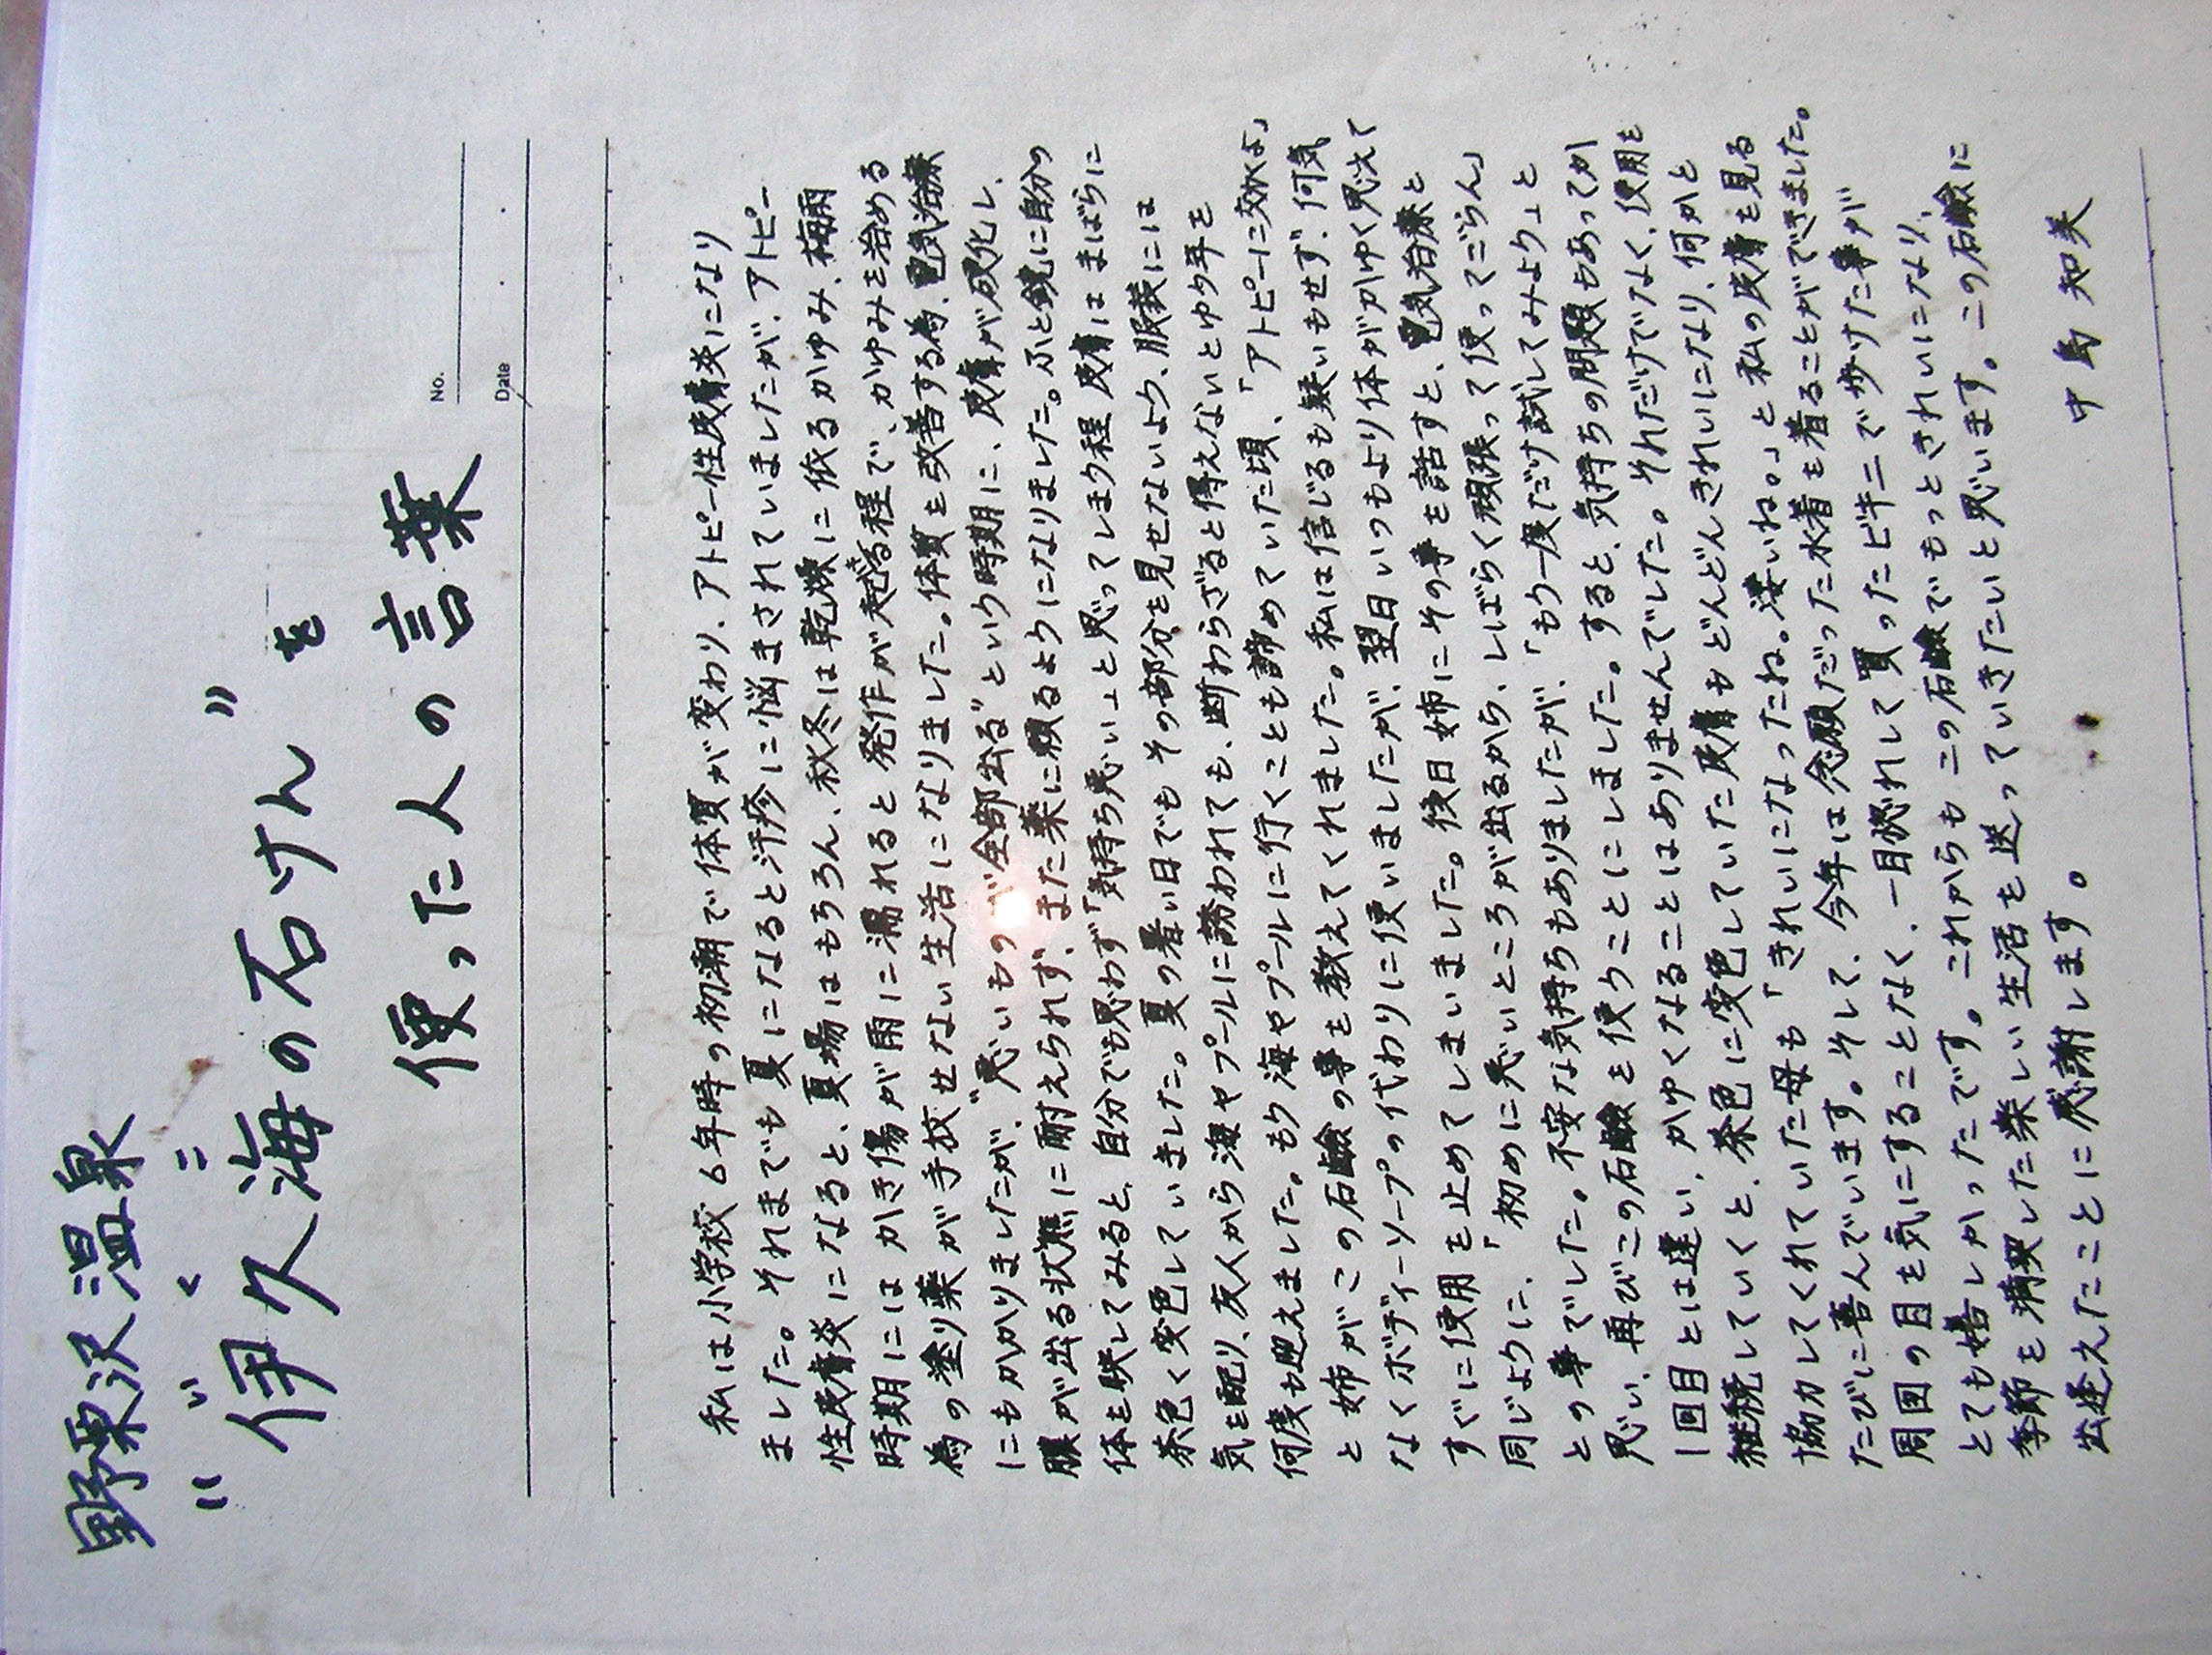 野栗沢温泉
いくに
"伊久海の石けん"を
使った人の言葉
No.
Date
私は小学校6年時の初潮で体質が変わり、アトピー性皮膚炎になり
ました。それまでも夏になると汗疹に悩まされていましたが、アトピー
性皮膚炎になると、夏場はもちろん、秋冬は乾燥に依るかゆみ、梅雨
時期にはかき傷が雨に濡れると発作が起きる程で、かゆみを治める
為の塗り薬が手放せない生活になりました。体質を改善する為、電気治療
にもかかりましたが、"悪いもの"全部出る"という時期に、皮膚が硬化し、
膿が出る状態に耐えられず、また薬に頼るようになりました。ふと鏡に自分の
体を映してみると、自分でも思わず「気持ち悪い」と思ってしまう程皮膚はまばらに
茶色く変色していました。夏の暑い日でもその部分を見せないよう、服装には
気を配り、友人から海やプールに誘われても、断わらざると得えないとゆう年を
何度も迎えました。もう海やプールに行くことも諦めていた頃、「アトピーに効くよ」
と姉がこの石鹸の事を教えてくれました。私は信じるも疑いもせず、何気
なくボディーソープの代わりに使いましたが、翌日いつもより体がかゆく思えて
すぐに使用を止めてしまいました。後日姉にその事を話すと、電気治療と
同じように、「初めに悪いところが出るから、しばらく頑張って使ってごらん」
との事でした。不安な気持ちもありましたが、「もう一度だけ試してみよう」と
思い、再びこの石鹸を使うことにしました。すると、気持ちの問題もあってか
1回目とは違い、かゆくなることはありませんでした。それだけでなく、使用を
継続していくと、茶色に変色していた皮膚もどんどんきれいになり、何かと
協力してくれていた母も「きれいになったね。凄いね。」と私の皮膚を見る
たびに喜んでいます。そして、今年は念願だった水着を着ることができました。
周囲の目を気にすることなく、一目惚れして買ったビキニで歩けた事が
とても嬉しかったです。これからもこの石鹸でもっときれいになり、
季節を満喫した楽しい生活を送っていきたいと思います。この石鹸に
出逢えたことに感謝します。
中島知美